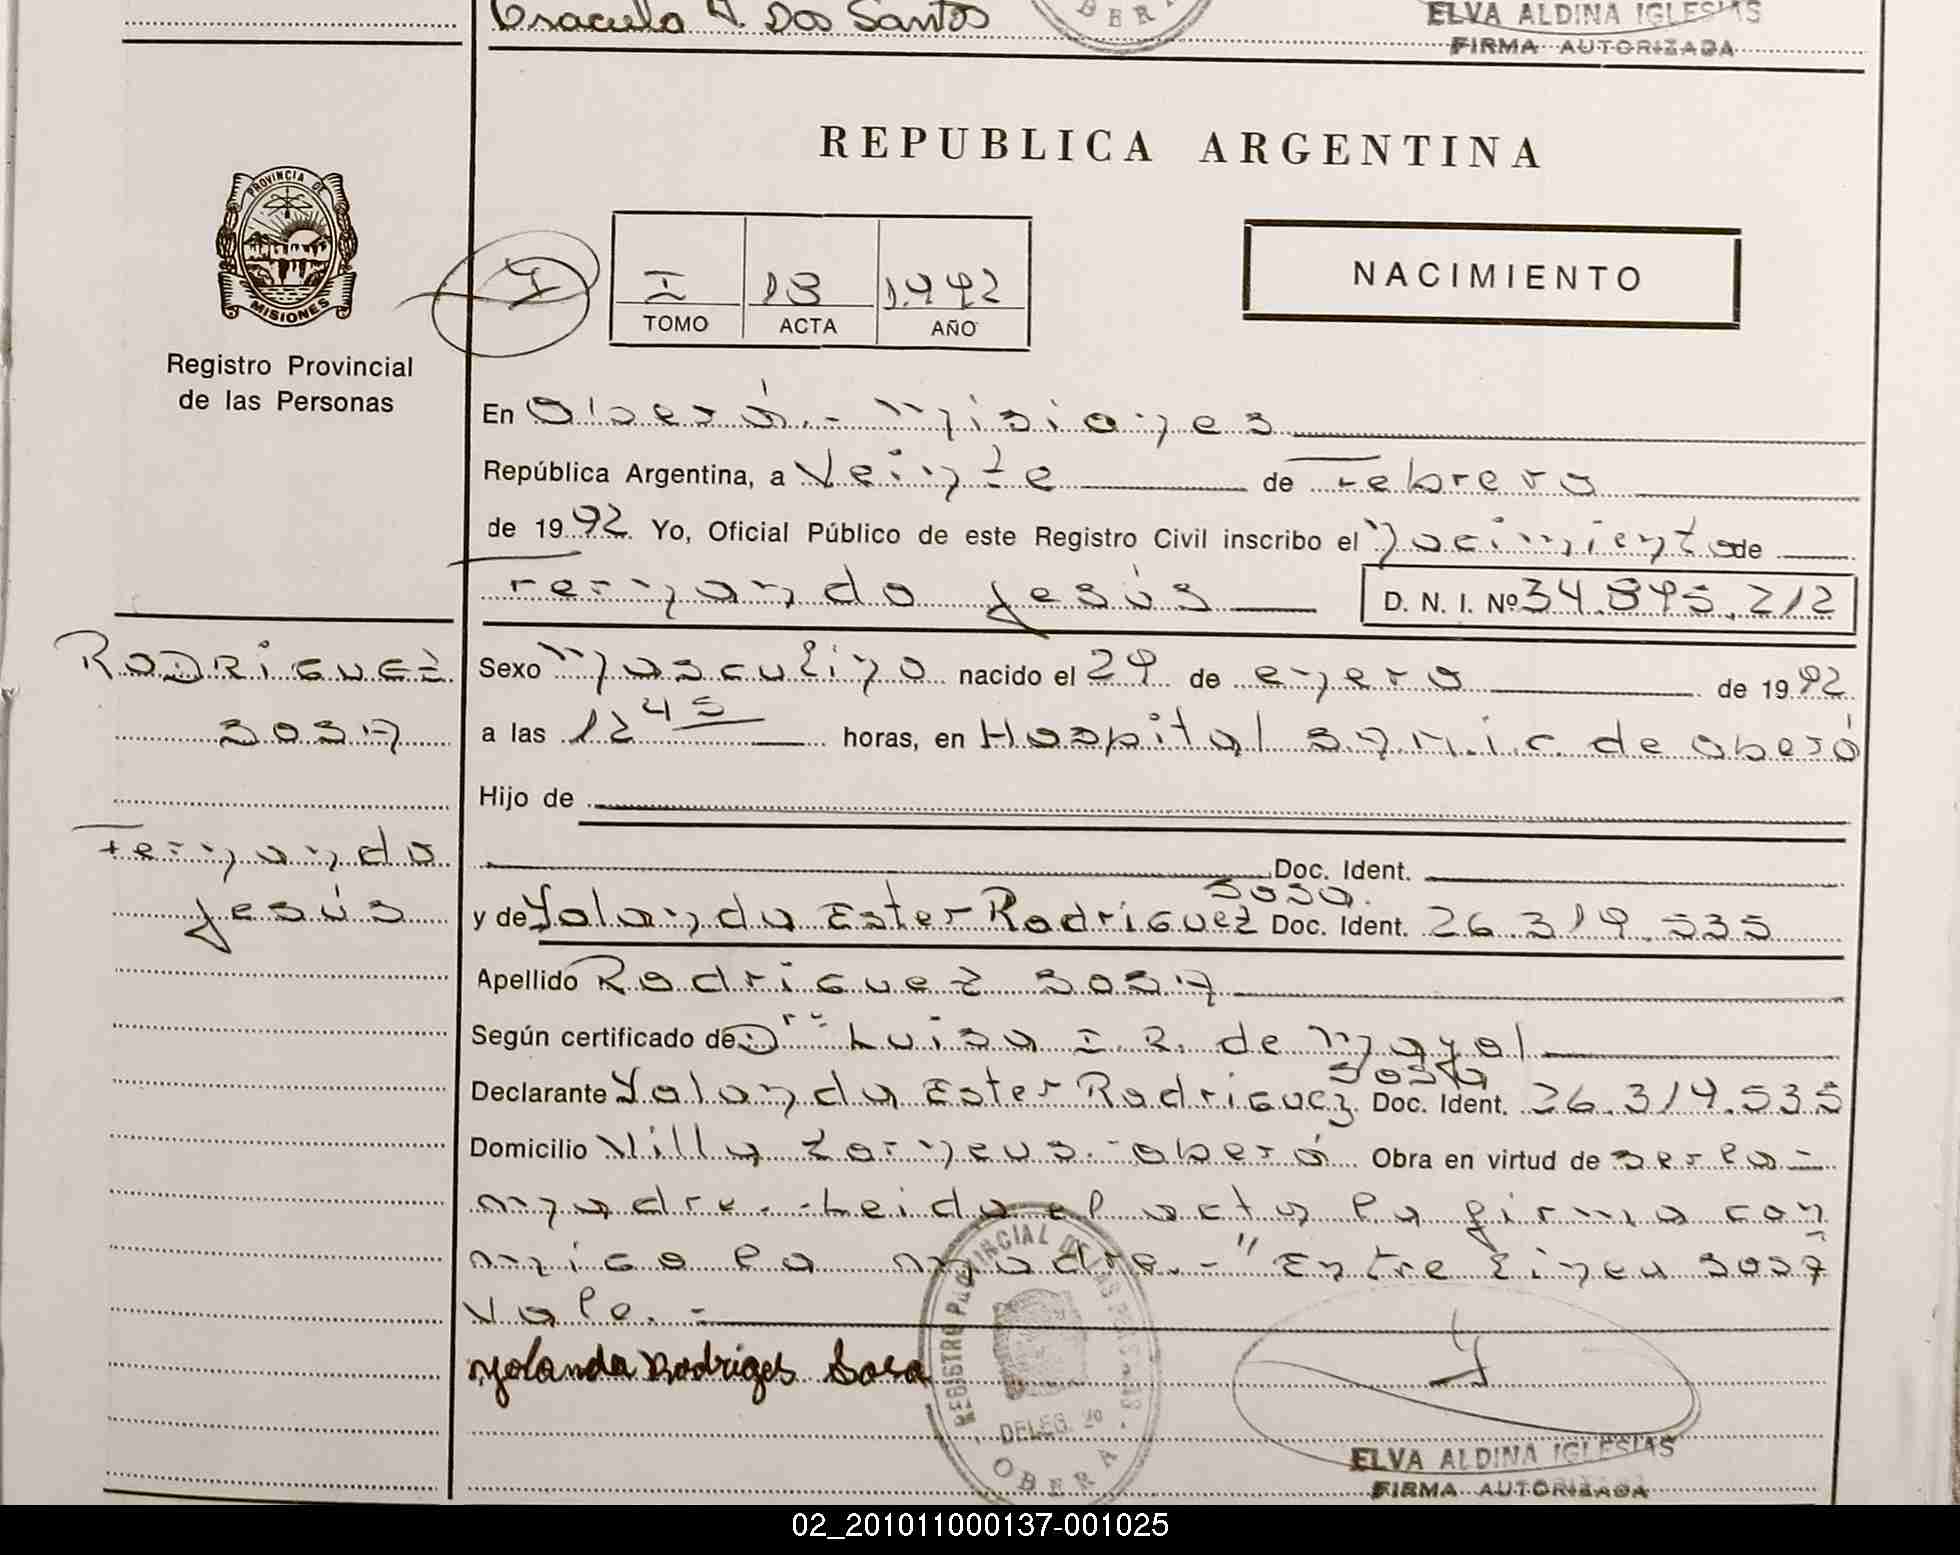 Graciela N. Dos Santos
OBERA
ELVA ALDINA IGLESIAS
FIRMA AUTORIZADA
REPUBLICA ARGENTINA
PROVINCIA DE
MISIONES
Registro Provincial
de las Personas
I 13 1992
TOMO ACTA AÑO
NACIMIENTO
En Oberá.- Misiones
República Argentina, a Veinte de Febrero
de 1992. Yo, Oficial Público de este Registro Civil inscribo el Nacimiento de
Fernando Jesús D. N. I. Nº 34.895.212
RODRIGUEZ
SOSA
Fernando
Jesús
Sexo Masculino nacido el 29 de enero de 1992
a las 12 45 horas, en Hospital de oberá
Hijo de
Doc. Ident.
SOSA.
y de Yolanda Ester Rodriguez Doc. Ident. 26.319.535
Apellido Rodriguez SOSA
Según certificado de Dra. Luisa I. R. de Mayol
SOSA
Declarante Yolanda Ester Rodriguez Doc. Ident. 26.319.535
Domicilio Villa oberá Obra en virtud de ser la
madre.- Leida el acta la firma con
migo la madre.- "Entre linea SOSA
Vale.-
Yolanda Rodriges Sosa
REGISTRO PROVINCIAL DE LAS PERSONAS
DELEG. 2º
OBERA
ELVA ALDINA IGLESIAS
FIRMA AUTORIZADA
02_201011000137-001025